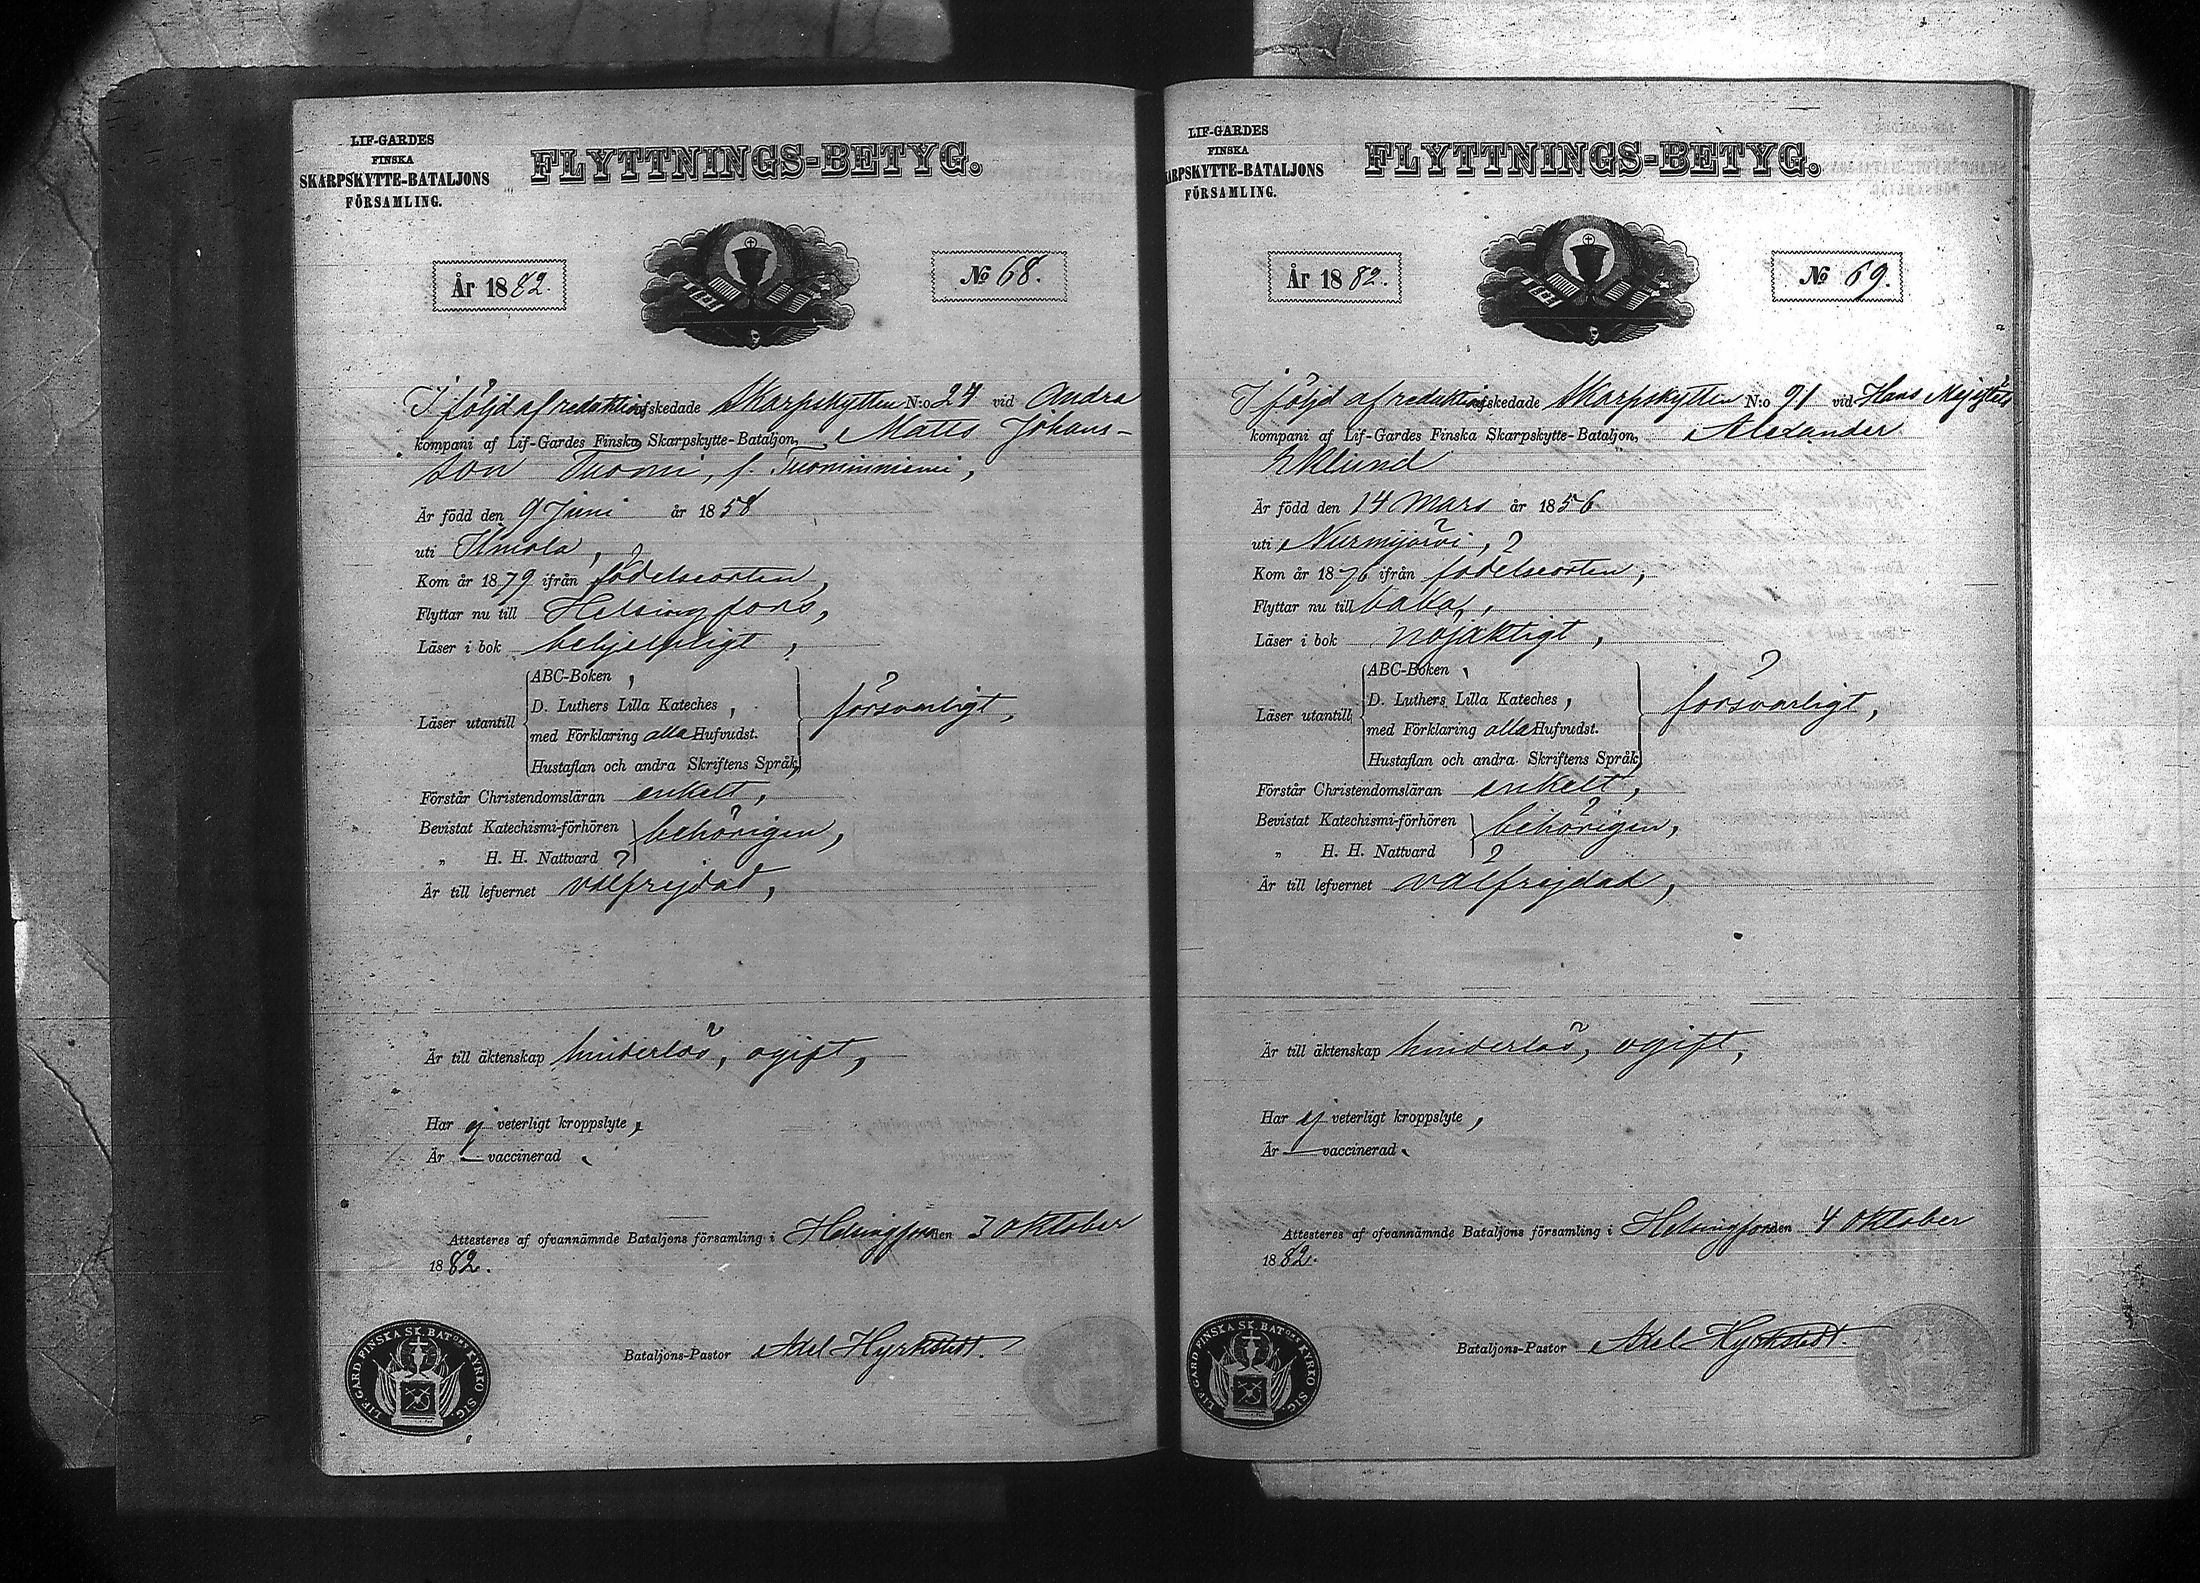 LIF-GARDES
FINSKA
SKARPSKYTTE-BATALJONS
FÖRSAMLING.
FLYTTNINGS-BETYG.
År 1882.
No 68.
I följd af reduktion afskedade Skarpskytten N:o 27 vid Andra
kompani af Lif-Gardes Finska Skarpskytte-Bataljon, Matts Johans-
son Tuomi, f. Tuominniemi,
Är född den 9 Juni år 1858
uti Ilmola,
Kom år 1879 ifrån födelseorten,
Flyttar nu till Helsingfors,
Läser i bok behjelpligt,
Läser utantill
ABC-Boken,
D. Luthers Lilla Kateches,
med Förklaring alla Hufvudst.
Hustaflan och andra Skriftens Språk,
försvarligt,
Förstår Christendomsläran enkelt,
Bevistat Katechismi-förhören
„ H. H. Nattvard
behörigen,
Är till lefvernet välfrejdad,
Är till äktenskap hinderlös, ogift,
Har ej veterligt kroppslyte,
Är — vaccinerad.
Attesteres af ofvannämnde Bataljons församling i Helsingfors den 3 Oktober
1882.
Bataljons-Pastor Axel Hyrkstedt.
LIF. GARD. FINSKA SK. BATONS KYRKO SIG.
LIF-GARDES
FINSKA
ARPSKYTTE-BATALJONS
FÖRSAMLING.
FLYTTNINGS-BETYG.
År 1882.
No 69.
I följd af reduktion afskedade Skarpskytten N:o 91 vid Hans Majestäts
kompani af Lif-Gardes Finska Skarpskytte-Bataljon, Alexander
Eklund
Är född den 14 Mars år 1856
uti Nurmijärvi,
Kom år 1876 ifrån födelseorten,
Flyttar nu till
Läser i bok nöjaktigt,
Läser utantill
ABC-Boken,
D. Luthers Lilla Kateches,
med Förklaring alla Hufvudst.
Hustaflan och andra Skriftens Språk
försvarligt,
Förstår Christendomsläran enkelt,
Bevistat Katechismi-förhören
„ H. H. Nattvard
behörigen,
Är till lefvernet välfrejdad,
Är till äktenskap hinderlös, ogift,
Har ej veterligt kroppslyte,
Är — vaccinerad.
Attesteres af ofvannämnde Bataljons församling i Helsingfors den 4 Oktober
1882.
Bataljons-Pastor Axel Hyrkstedt.
LIF. GARD. FINSKA SK. BATONS KYRKO SIG.